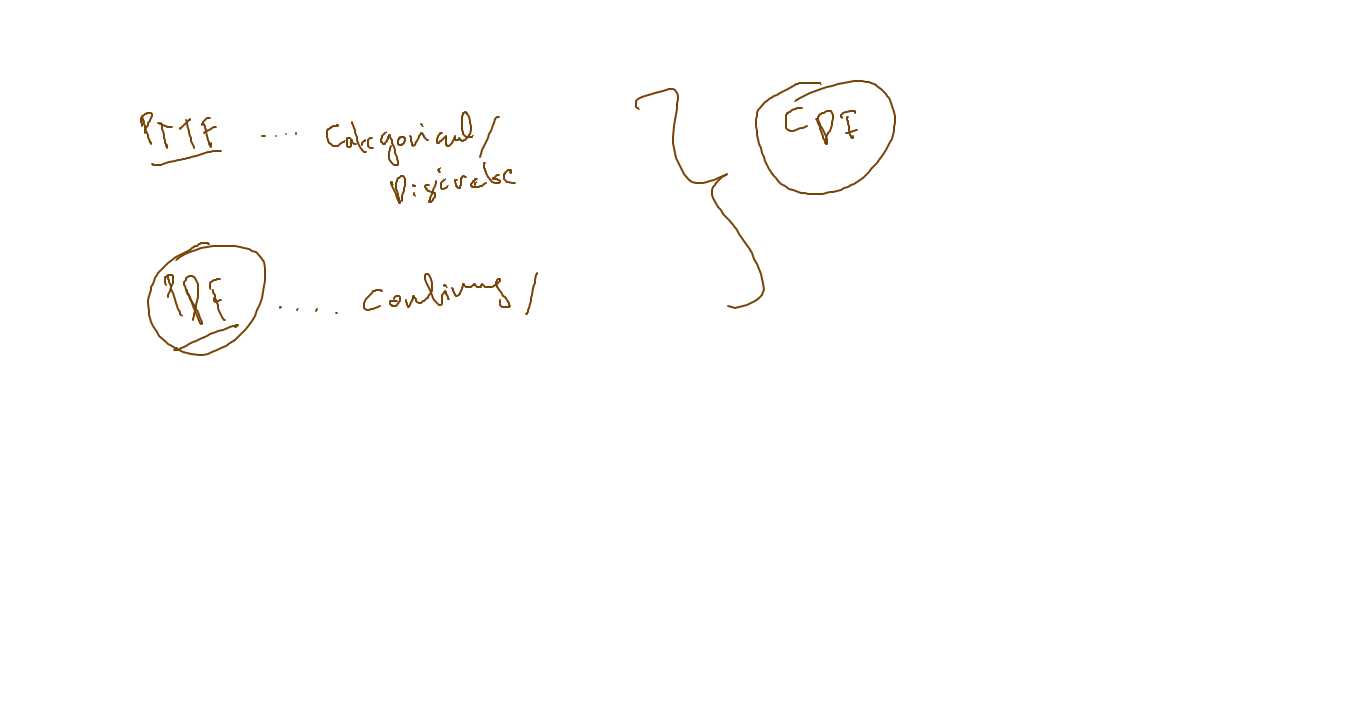 PMF .... Categorical/
Discrete
CDF
PDF ..... Continuous/